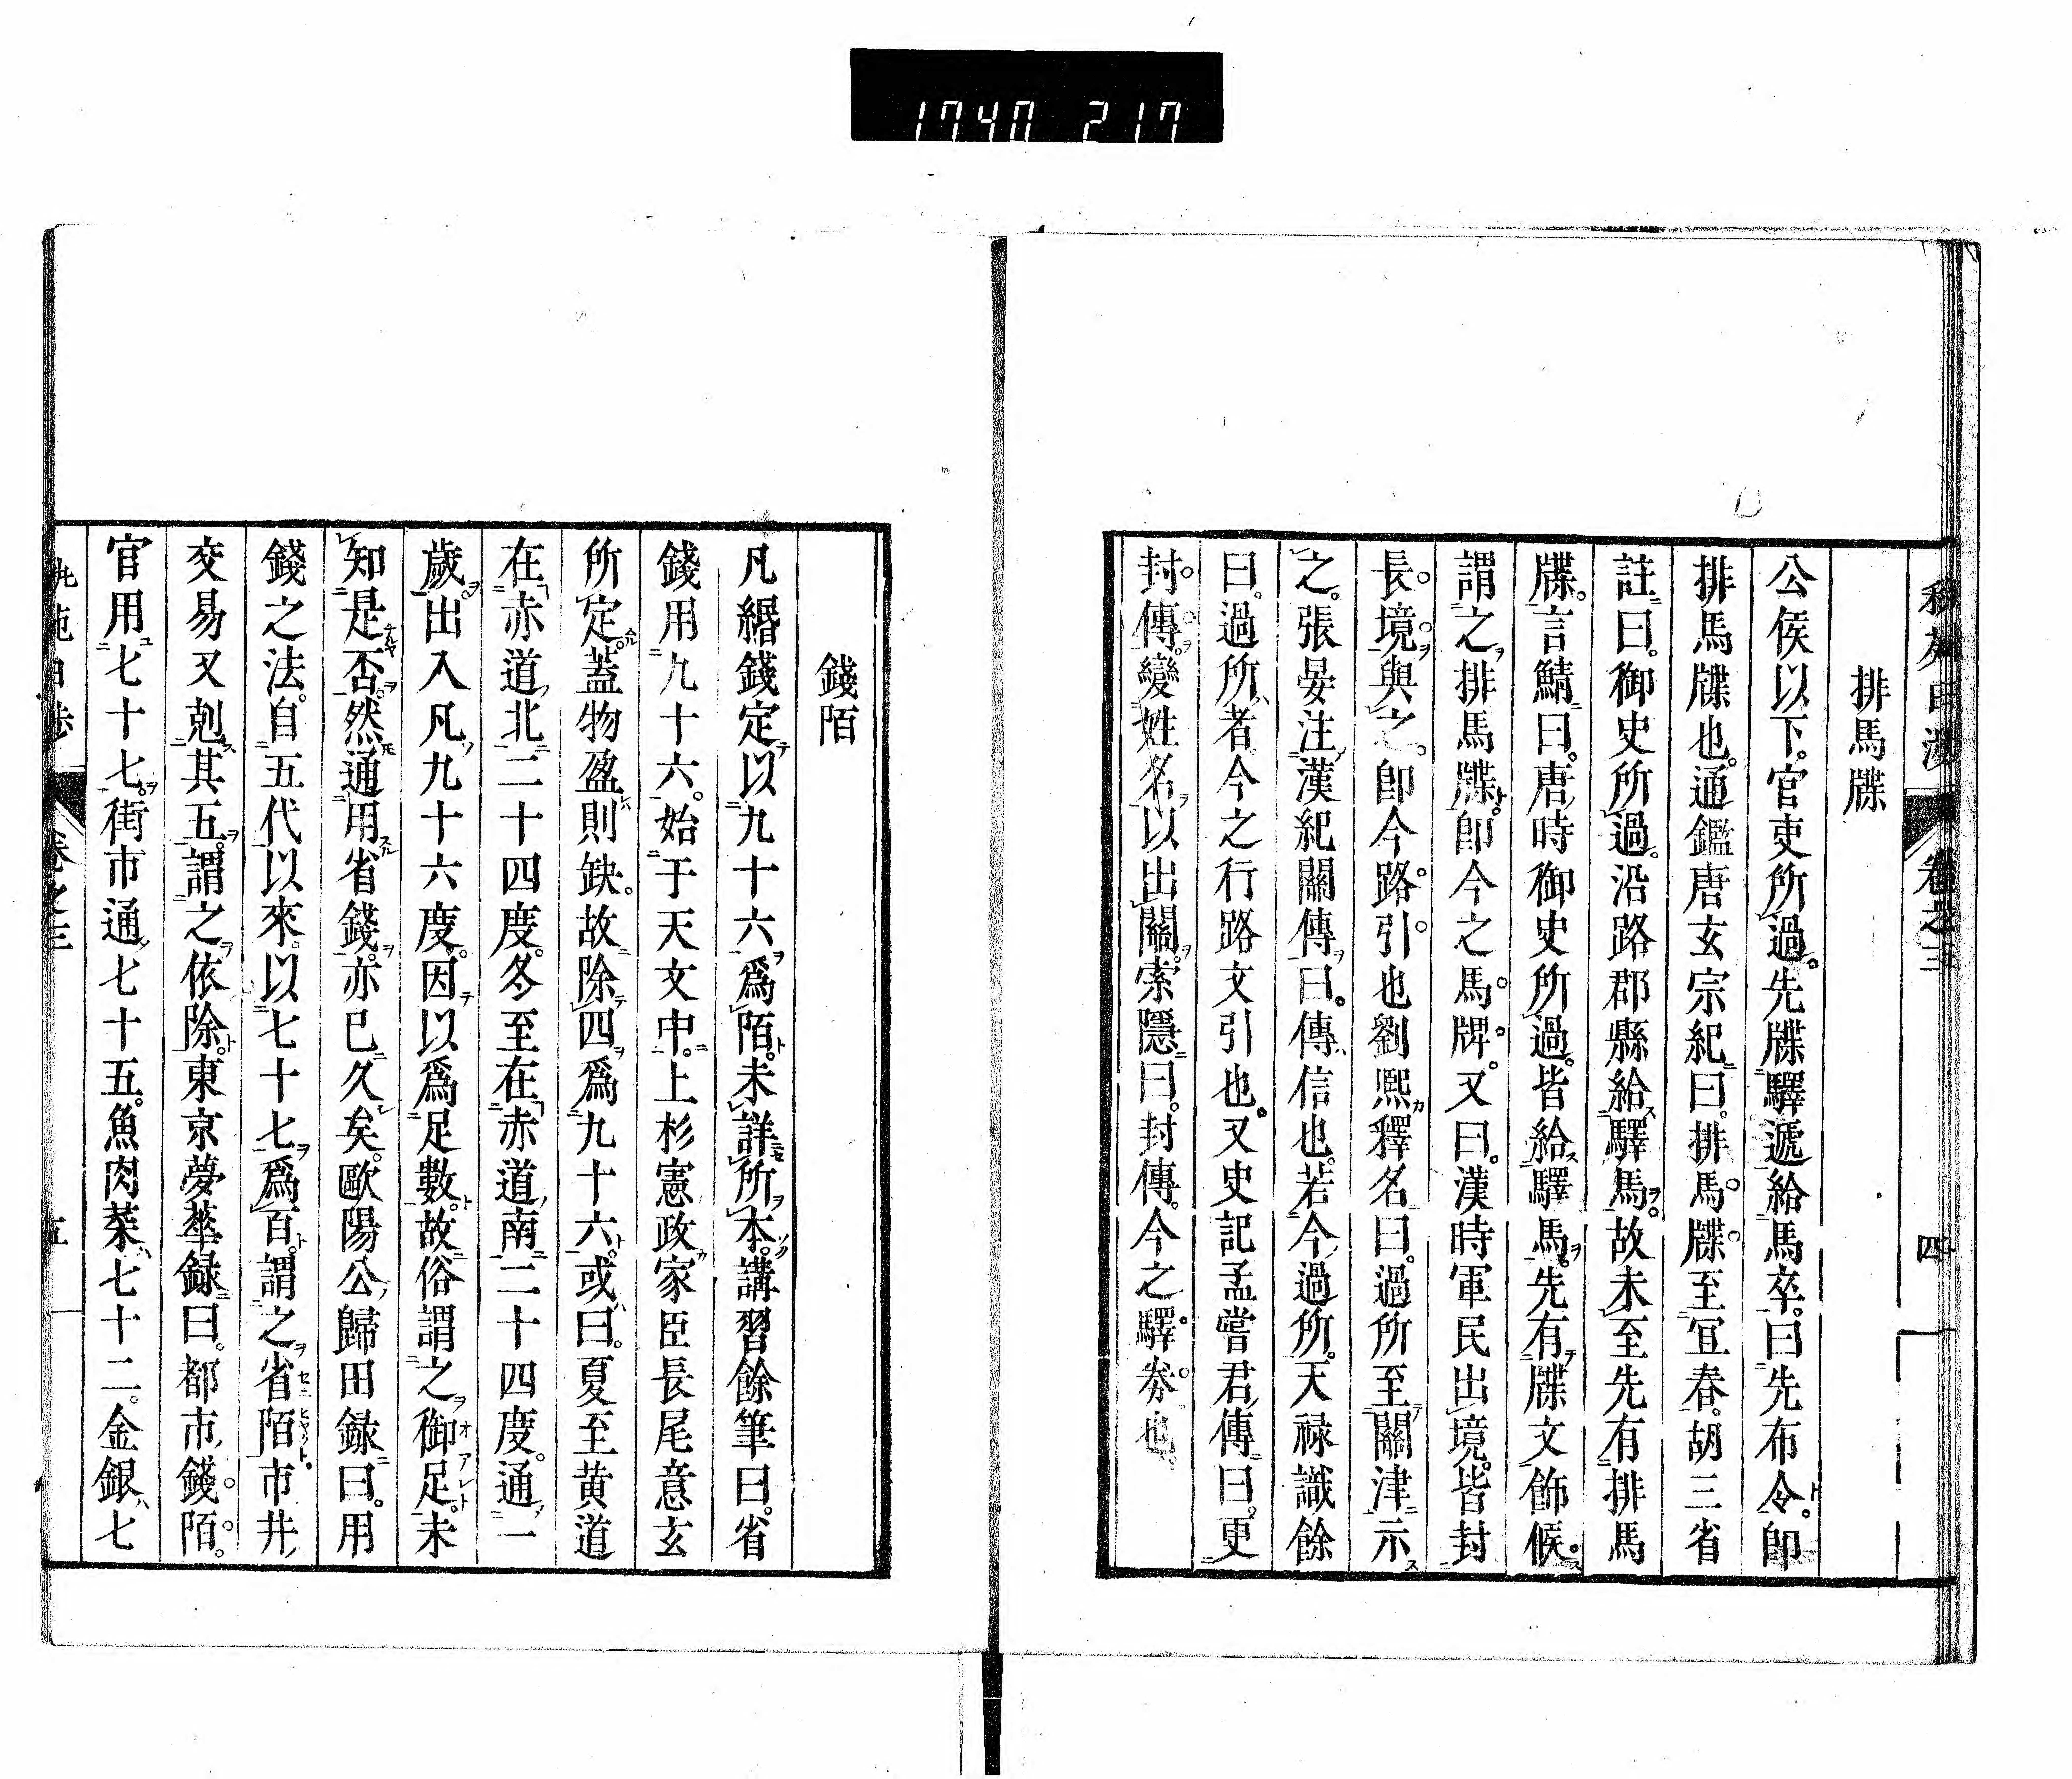 1740 217
卷之三
四
排馬牒
公侯以下。官吏所過。先牒驛遞給馬卒。曰先布令。卽
排馬牒也。通鑑唐玄宗紀曰。排馬牒至宜春。胡三省
註曰。御史所過。沿路郡縣給驛馬。故未至先有排馬
牒。言鯖曰。唐時御史所過。皆給驛馬。先有牒文飭候。
謂之排馬牒。卽今之馬牌。又曰。漢時軍民出境。皆封
長境與之。卽今路引也劉熙釋名曰。過所至關津示
之。張晏注漢紀關傳曰。傳信也。若今過所。天祿識餘
曰。過所者今之行路文引也。又史記孟嘗君傳曰。更
封傳變姓名以出關。索隱曰。封傳。今之驛券也。
錢陌
凡緡錢定以九十六爲陌。未詳所本。講習餘筆曰。省
錢用九十六。始于天文中。上杉憲政家臣長尾意玄
所定。蓋物盈則缺。故除四爲九十六。或曰。夏至黄道
在赤道北二十四度。冬至在赤道南二十四度。通一
歲。出入凡九十六度。因以爲足數。故俗謂之御足。未
知是否。然通用省錢。亦已久矣。歐陽公歸田録曰。用
錢之法。自五代以來。以七十七爲百。謂之省陌。市井
交易又剋其五。謂之依除。東京夢華録曰。都市錢陌。
官用七十七。街市通七十五。魚肉菜七十二。金銀七
卷之三
五